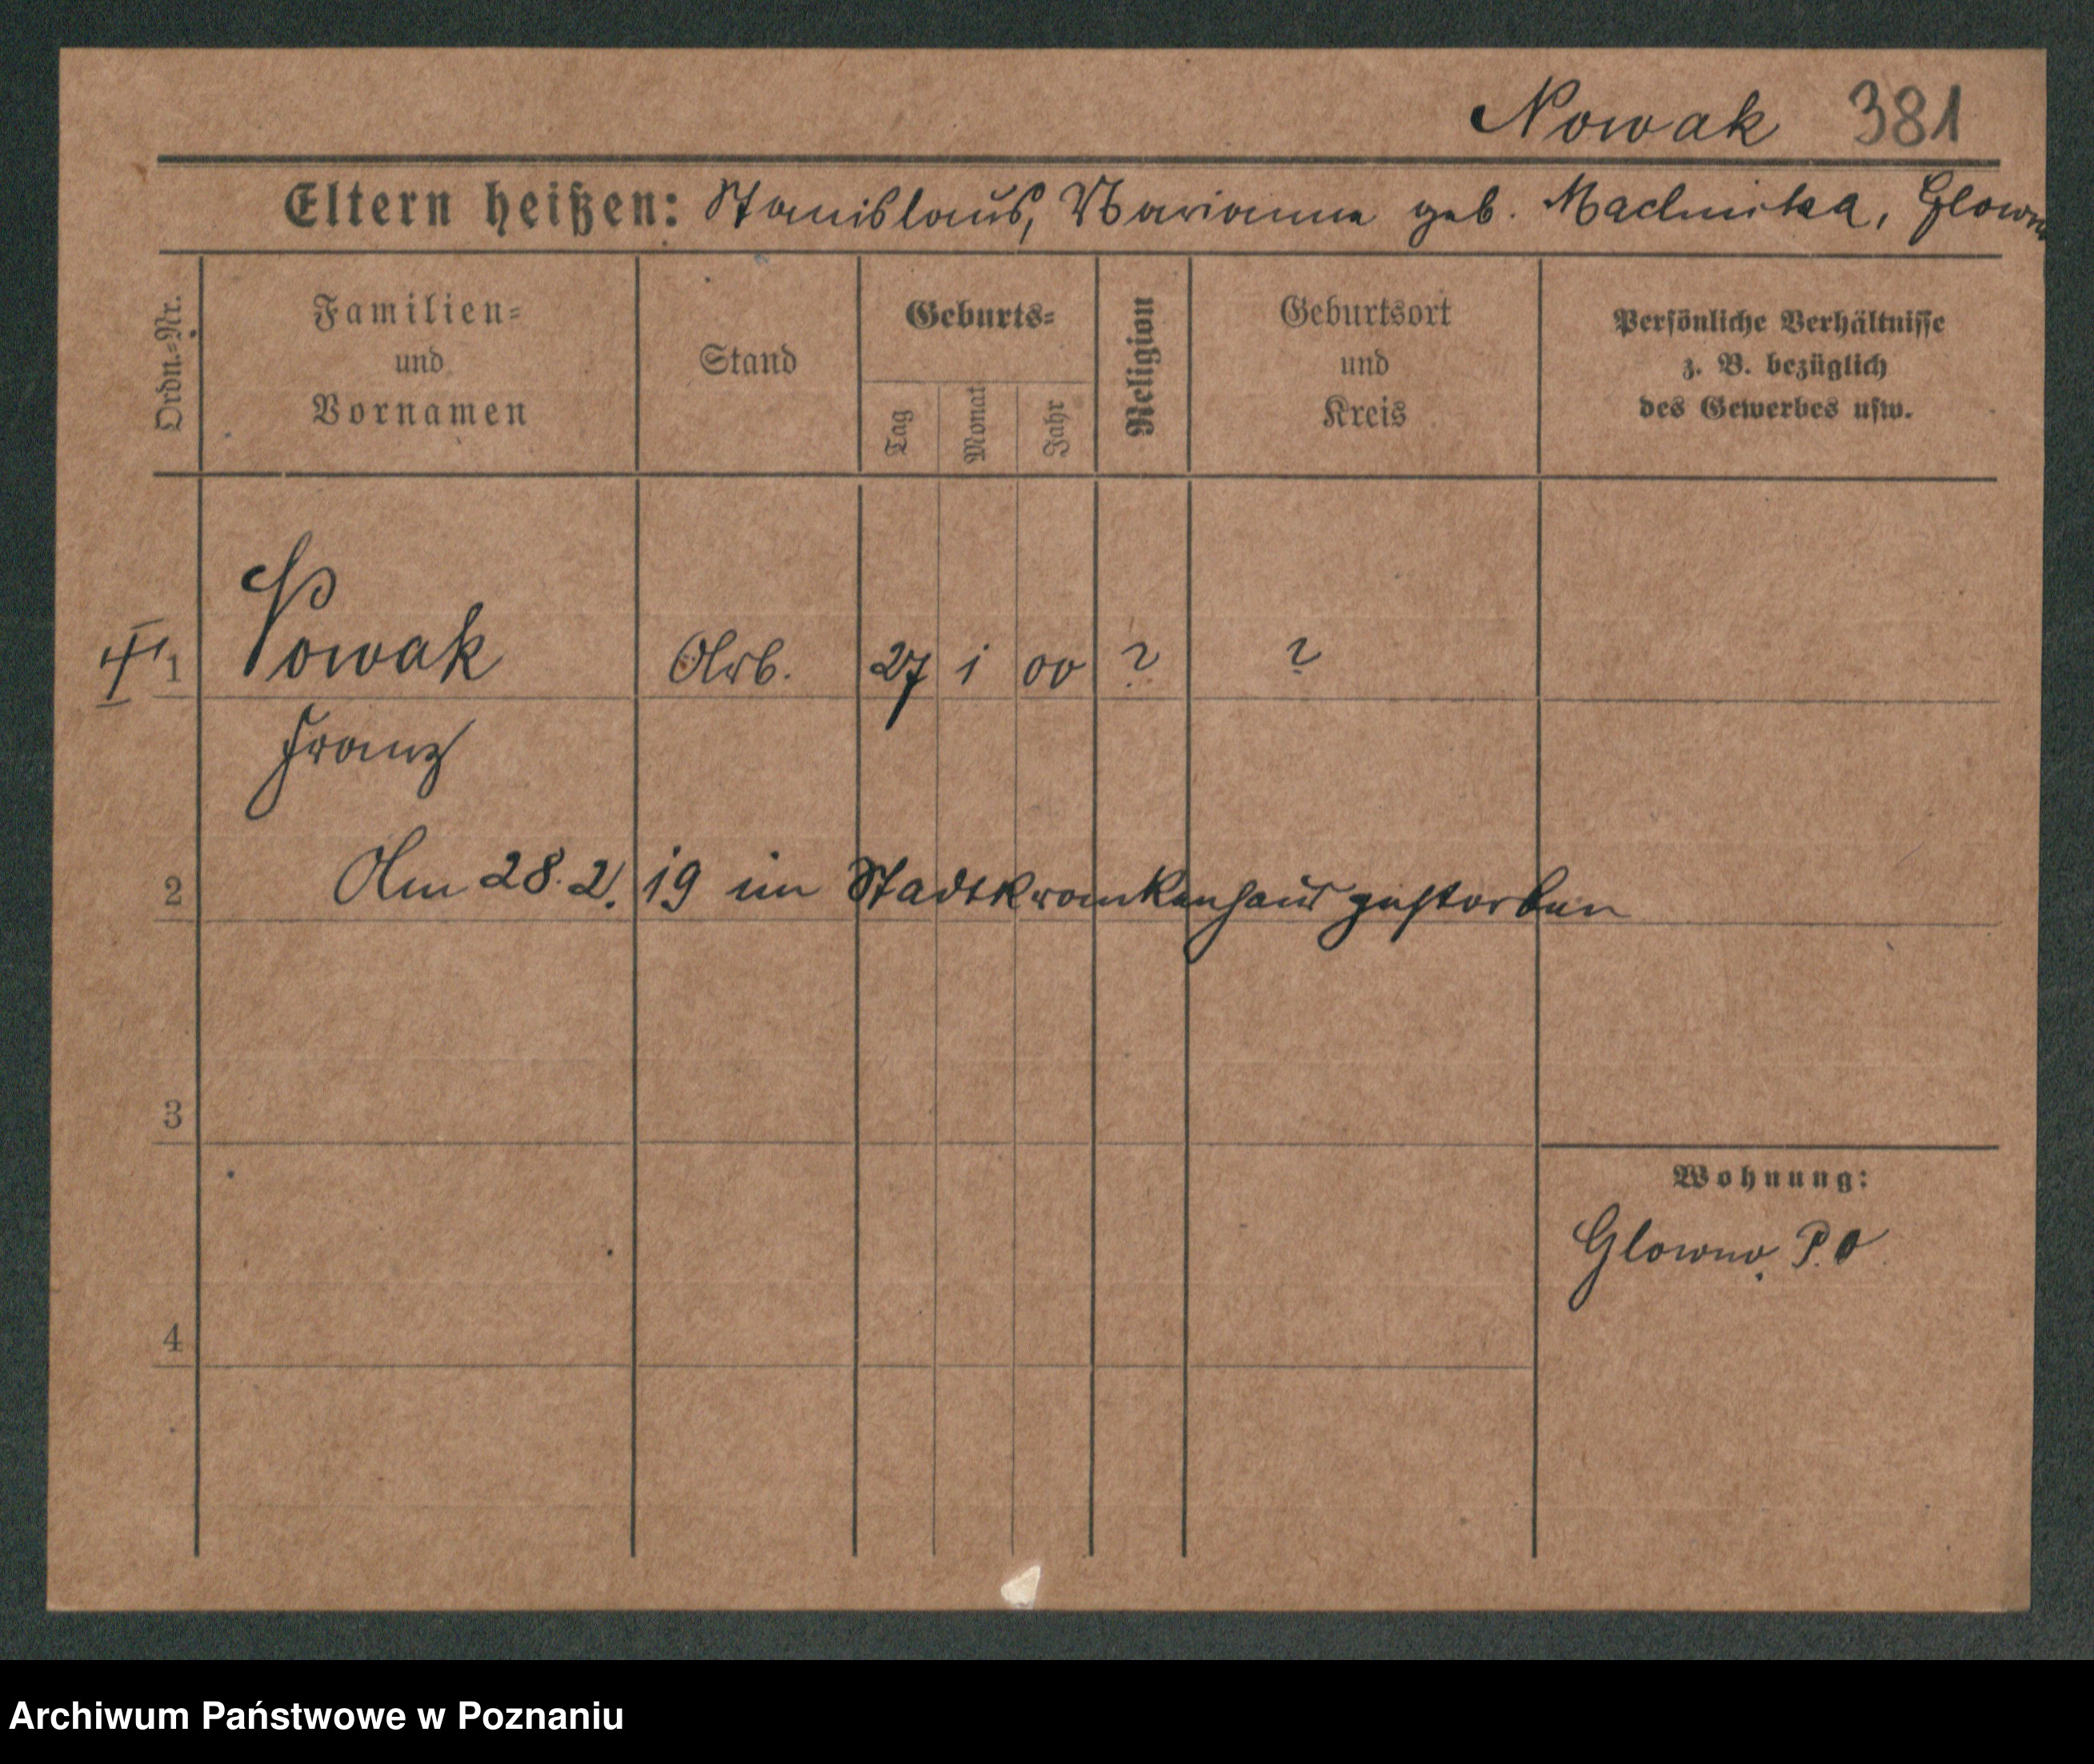 Nowak 381
Eltern heißen: Stanislaus, Marianna geb. Machnicka, Glowno
Ordn.-Nr.
Familien-
und
Vornamen
Stand
Geburts-
Tag
Monat
Jahr
Religion
Geburtsort
und
Kreis
Persönliche Verhältnisse
z. B. bezüglich
des Gewerbes usw.
1 Nowak Arb. 27 1 00 ? ?
Franz
2 Am 28.2.19 im Stadtkrankenhaus gestorben
3
Wohnung:
Glowno P.O
4
Archiwum Państwowe w Poznaniu